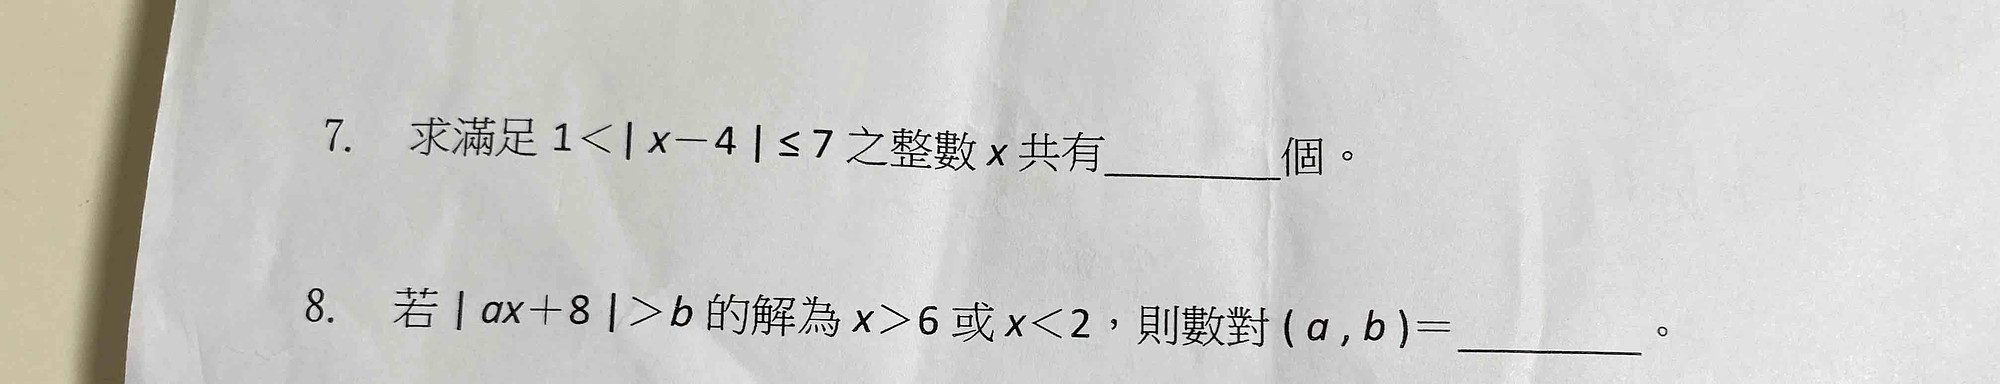 7. 求滿足 1＜| x－4 | ≤ 7 之整數 x 共有______個。
8. 若 | ax＋8 |＞b 的解為 x＞6 或 x＜2，則數對 ( a , b )＝______。